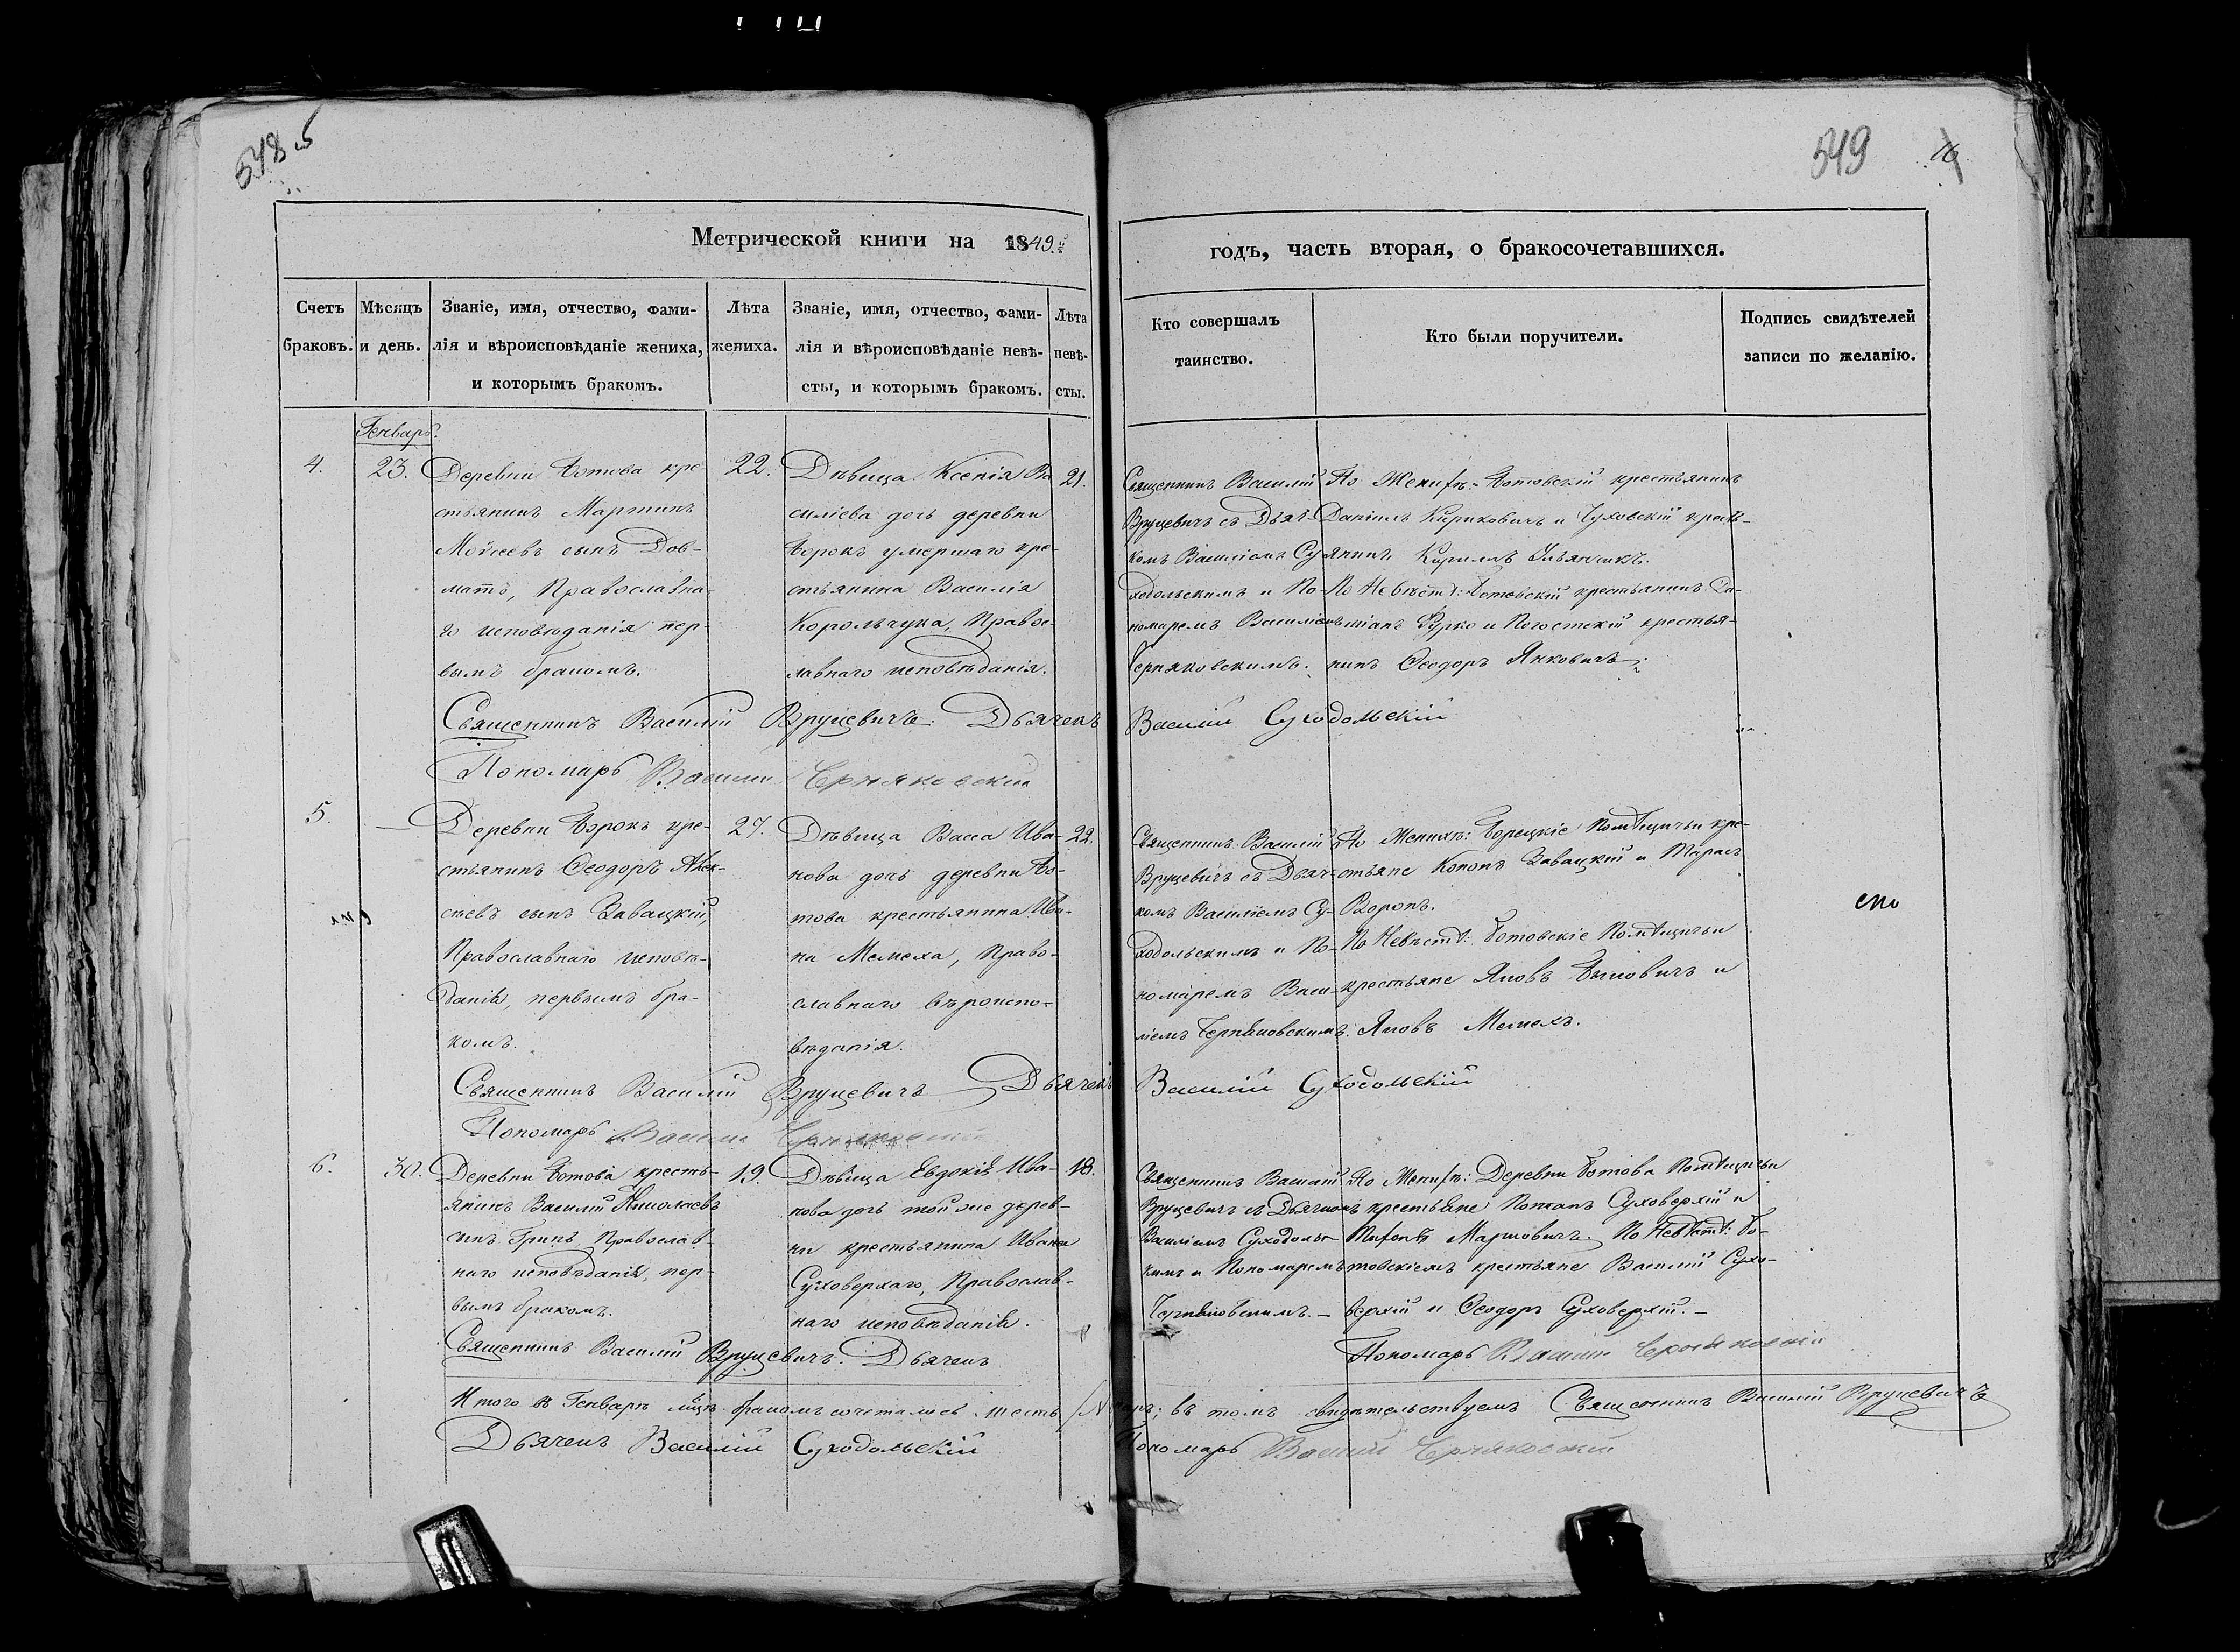 548 5
549
Метрической книги на 1849.
годъ, часть вторая, о бракосочетавшихся.
Счетъ браковъ.
Мѣсяцъ и день.
Званіе, имя, отчество, фами-
лія и вѣроисповѣданіе жениха,
и которымъ бракомъ.
Лѣта
жениха.
Званіе, имя, отчество, фами-
лія и вѣроисповѣданіе невѣ-
сты, и которымъ бракомъ.
Лѣта
невѣ-
сты.
Кто совершалъ
таинство.
Кто были поручители.
Подпись свидѣтелей
записи по желанію.
Генварь.
4.
23.
Деревни Ботова кре-
стьянинъ Мартинъ
Моѵсеевъ сынъ Дов-
матъ, Православна-
го исповѣданія пер-
вымъ бракомъ.
22.
Дѣвица Ксенія Ва
силіева дочь деревни
Борокъ умершаго кре-
стьянина Василія
Корольчука, Правос-
лавнаго исповѣданія.
21.
Священникъ Василій
Вруцевичъ съ Дьяч-
комъ Василіемъ Су
ходольскимъ и По-
номаремъ Василіемъ
Черняковскимъ.
По Женихѣ: Ботовскій крестьянинъ
Даніилъ Кириковичъ и Чуховскій крест-
янинъ Кириллъ Ульянчикъ.
По Невѣстѣ: Ботовскій крестьянинъ
Бурко и Погостскій крестья-
нинъ Ѳеодоръ Янковичъ
Священникъ Василій Вруцевичъ. Дьячекъ Василій Суходольскій
Пономарь Василий Черняковский
5.
—
Деревни Борокъ кре-
стьянинъ Ѳеодоръ Алек-
сѣевъ сынъ Завацкій,
Православнаго исповѣ-
данія, первымъ бра-
комъ.
27.
Дѣвица Васса Ива-
нова дочь деревни Бо-
това крестьянина Ива-
на Мемеха, Право-
славнаго вѣроиспо-
вѣданія.
22.
Священникъ Василій
Вруцевичъ съ Дьяч-
комъ Василіемъ Су-
ходольскимъ и По-
номаремъ Васи-
ліемъ Черняковскимъ.
По Женихѣ: Борецкіе Помѣщичьи кре-
стьяне Кононъ Завацкій и Тарасъ
Воронъ.
По Невѣстѣ: Ботовскіе Помѣщичьи
крестьяне Яковъ Быковичъ и
Яковъ Мемехъ.
Священникъ Василій Вруцевичъ Дьячекъ Василій Суходольскій
Пономарь Василий Черняковский
6.
30.
Деревни Ботова кресть-
янинъ Василій Николаевъ
сынъ Гринъ, Православ-
наго исповѣданія, пер-
вымъ бракомъ.
19.
Дѣвица Евдокія Ива-
нова дочь той же дерев-
ни крестьянина Ивана
Суховерхаго, Православ-
наго исповѣданія.
18.
Священникъ Василій
Вруцевичъ съ Дьячкомъ
Василіемъ Суходольс-
кимъ и Пономаремъ
Черняковскимъ. —
По Женихѣ: Деревни Ботова Помѣщичьи
крестьяне Суховерхій и
По Невѣстѣ: Бо-
товскіемъ крестьяне Василій Сухо-
верхій и Ѳеодоръ Суховерхій. —
Священникъ Василій Вруцевичъ. Дьячекъ
Пономарь Василий Черняковский
Итого въ Генварѣ м-цѣ бракомъ сочеталось шесть паръ; въ томъ свидѣтельствуемъ Священникъ Василій Вруцевичъ
Дьячекъ Василій Суходольскій
Пономарь Василий Черняковский